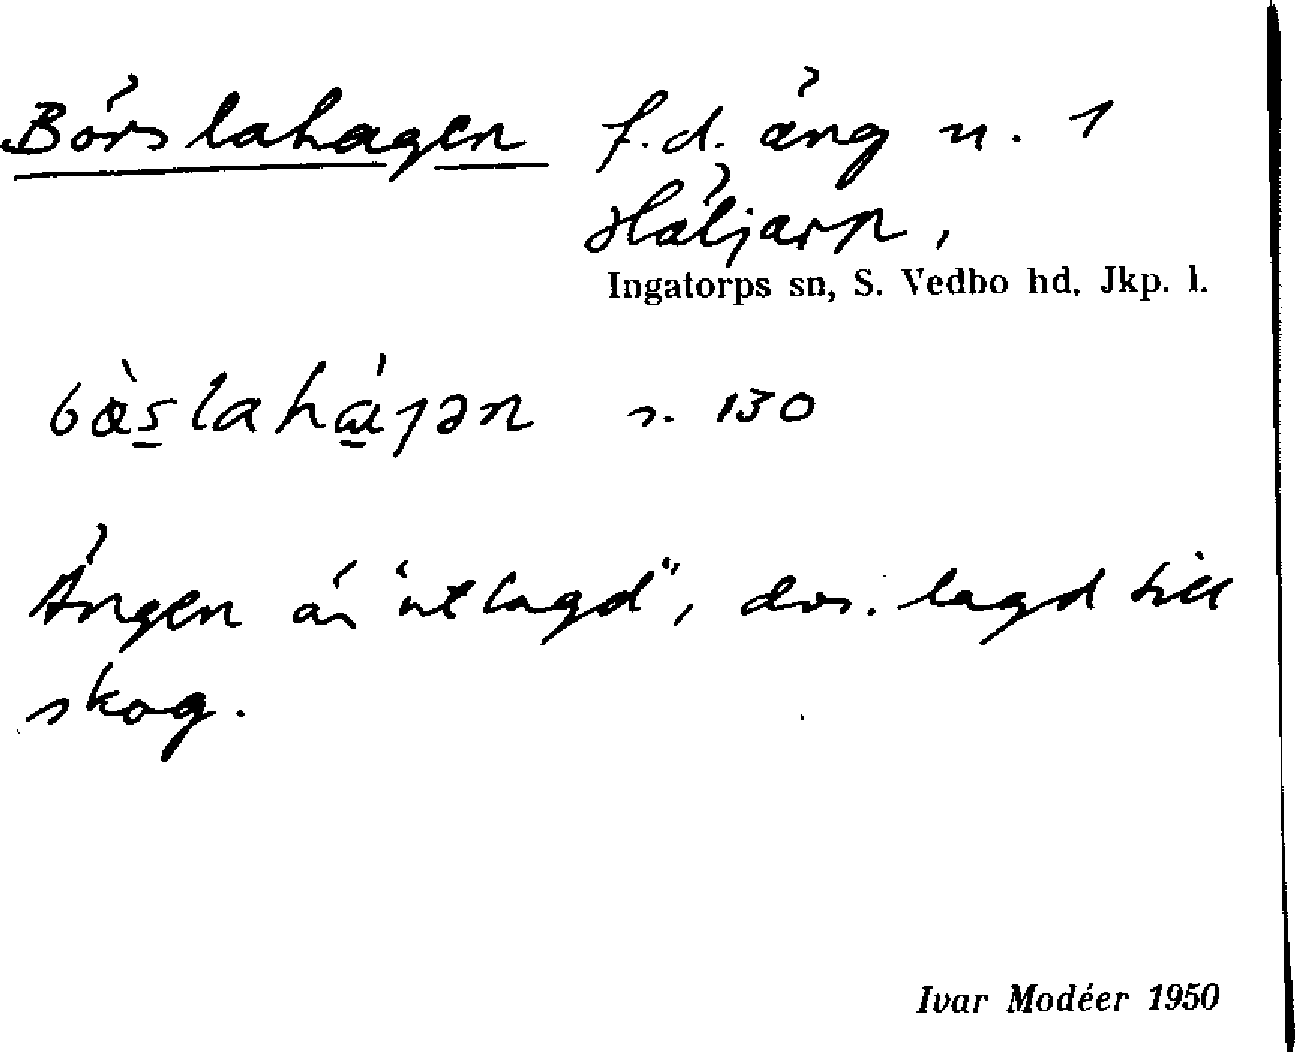 Börslahagen f.d. äng u. 1
Häljarp,
Ingatorps sn, S. Vedbo hd, Jkp. l.
s. 130
Ängen är "utlagd", dvs. lagd till
skog.
Ivar Modéer 1950